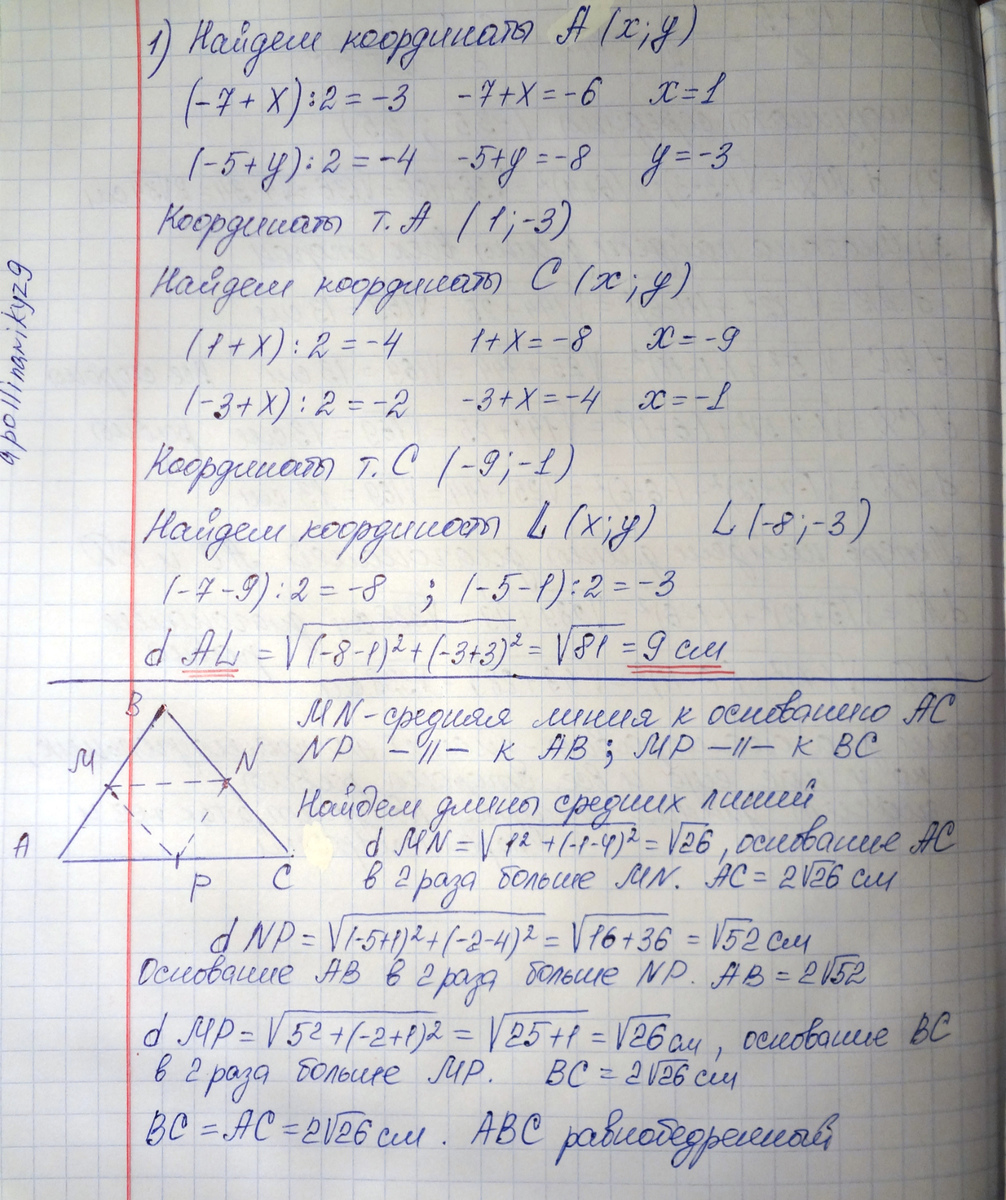 1) Найдем координаты А (х; у)
(-7 + х) : 2 = -3   -7+х = -6   х = 1
(-5+у) : 2 = -4   -5+у = -8   у = -3
Координаты т. А (1; -3)
Найдем координаты С (х; у)
(1+х) : 2 = -4   1+х = -8   х = -9
(-3+х) : 2 = -2   -3+х = -4   х = -1
Координаты т. С (-9; -1)
Найдем координаты L (х; у)   L (-8; -3)
(-7-9) : 2 = -8 ; (-5-1) : 2 = -3
d AL = √(-8-1)² + (-3+3)² = √81 = 9 см
apollinariky29
B
M
N
A
P
C
MN - средняя линия к основанию АС
NP -//- к АВ ; MP -//- к ВС
Найдем длины средних линий
d MN = √1² + (-1-4)² = √26, основание АС
в 2 раза больше MN. АС = 2√26 см
d NP = √(-5+1)² + (-2-4)² = √16+36 = √52 см
Основание АВ в 2 раза больше NP. АВ = 2√52
d MP = √5² + (-2+1)² = √25+1 = √26 см, основание ВС
в 2 раза больше MP. ВС = 2√26 см
ВС = АС = 2√26 см. АВС равнобедренный